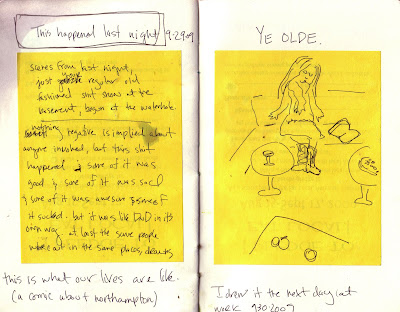 This happened last night 9-29-09
scenes from last night,
just your regular old
fashioned shit show at the
basement, began at the waterhole.
nothing negative is implied about
anyone involved, but this shit
happened & some of it was
good & some of it was sad
& some of it was awesome & some of
it sucked. but it was like D&D in its
own way at last the same people
out in the same places,
this is what our lives are like.
(a comic about northampton)
YE OLDE.
I drew it the next day at
work 9302009